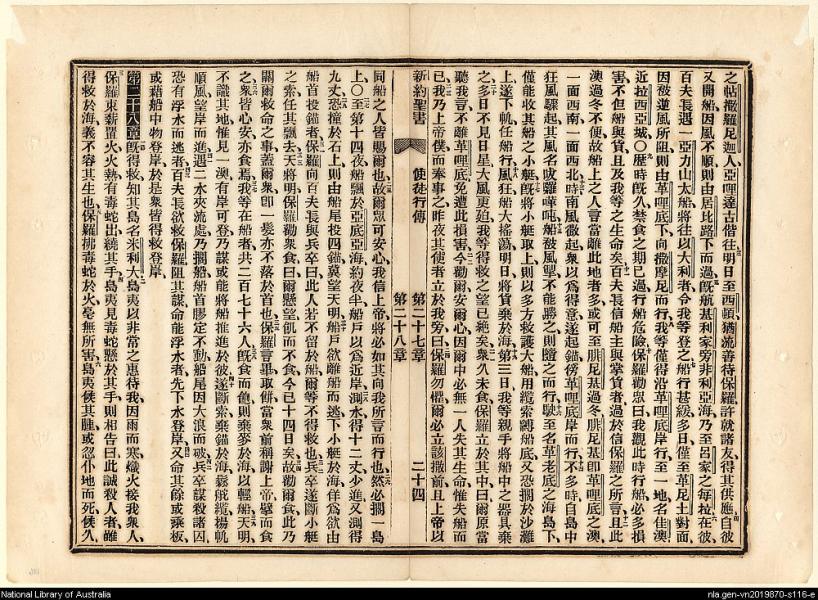 之帖撒羅尼迦人亞哩達古偕往明日至西頓猶流善待保羅許就諸友得其供應自彼
又開船因風不順則由居比路下而過旣航基利家旁非利亞海乃至呂家之每拉在彼
百夫長遇一亞力山太船將往以大利者令我等登之船行甚緩多日僅至革尼土對面
因被逆風所阻則由革哩底下向撒摩尼而行我等僅得沿革哩底岸行至一地名佳澳
近拉西亞城〇歷時旣久禁食之期已過行船危險保羅勸衆曰我觀此時行船必多損
害不但船與貨且及我等之生命矣百夫長信船主與掌貨者過於信保羅之所言且此
澳過冬不便故船上之人言當離此地者多或可至腓尼基過冬腓尼基卽革哩底之澳
一面西南一面西北時南風微起衆以爲得意遂起錨傍革哩底岸而行不多時自島中
狂風驟起其風名
上遂下帆任船行風狂船大搖蕩明日將貨棄於海第三日我等親手將船中之器具棄
之多日不見日星大風更廹我等得救之望已絕矣衆久未食保羅立於其中曰爾原當
聽我言不離革哩底免遭此損害今勸爾安爾心因爾中必無一人失其生命惟失船而
已我乃上帝僕而奉事之昨夜其使者立於我旁曰保羅勿懼爾必立該撒前且上帝以
新約聖書 使徒行傳 第二十七章 第二十八章 二十四
同船之人皆賜爾也故爾衆可安心我信上帝將必如其向我所言而行也然必擱一島
上〇至第十四夜船飄於亞底亞海約夜半船戶以爲近岸測水得十二丈少進又測得
九丈恐撞於石上則由船尾投四錨冀望天明船戶欲離船而逃下小艇於海佯爲欲由
船首投錨者保羅向百夫長與兵卒曰此人若不留於船爾等不得救也兵卒遂斷小艇
之索任其飄去天將明保羅勸衆食曰爾懸望飢而不食今已十四日矣故勸爾食此乃
關爾救命之事蓋爾衆卽一髮亦不落於首也保羅言畢取餅當衆前稱謝上帝擘而食
之衆皆心安亦食焉我等在船者共二百七十六人旣食而飽則棄麥於海以輕船天明
不識其地惟見一澳有岸可登乃謀或能將船推進於彼遂斷索棄錨於海鬆舵纜揚帆
順風望岸而進遇二水夾流處乃擱船船首膠定不動船尾因大浪而破兵卒謀殺諸囚
恐有浮水而逃者百夫長欲救保羅阻其謀命能浮水者先下水登岸又命其餘或乘板
或藉船中物登岸於是衆皆得救登岸
第二十八章旣得救知其島名米利大島夷以非常之惠待我因雨而寒熾火接我衆人
保羅束薪置火火熱有毒蛇出繞其手島夷見毒蛇懸於其手則相告曰此誠殺人者雖
得救於海義不容其生也保羅拂毒蛇於火毫無所害島夷俟其腫或忽仆地而死俟久
National Library of Australia
nla.gen-vn2019870-s116-e